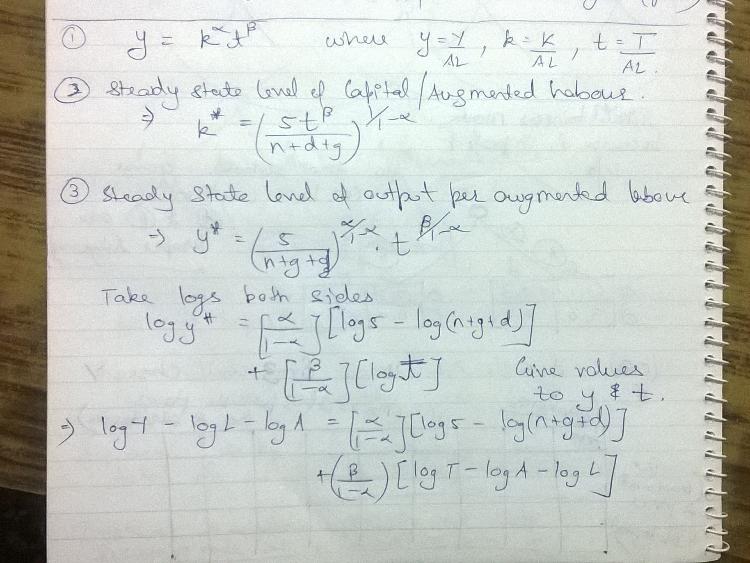 ① y = k^α t^β where y = Y/AL, k = K/AL, t = T/AL.
② Steady State level of Capital/Augmented Labour.
⇒ k* = (s t^β / n+d+g)^1/1-α
③ Steady State level of output per augmented labour
⇒ y* = (s / n+g+d)^α/1-α . t^β/1-α
Take logs both sides
log y* = [α/1-α] [log s - log(n+g+d)]
+ [β/1-α] [log t] Give values
to y & t.
⇒ log Y - log L - log A = [α/1-α] [log s - log(n+g+d)]
+ (β/1-α) [log T - log A - log L]